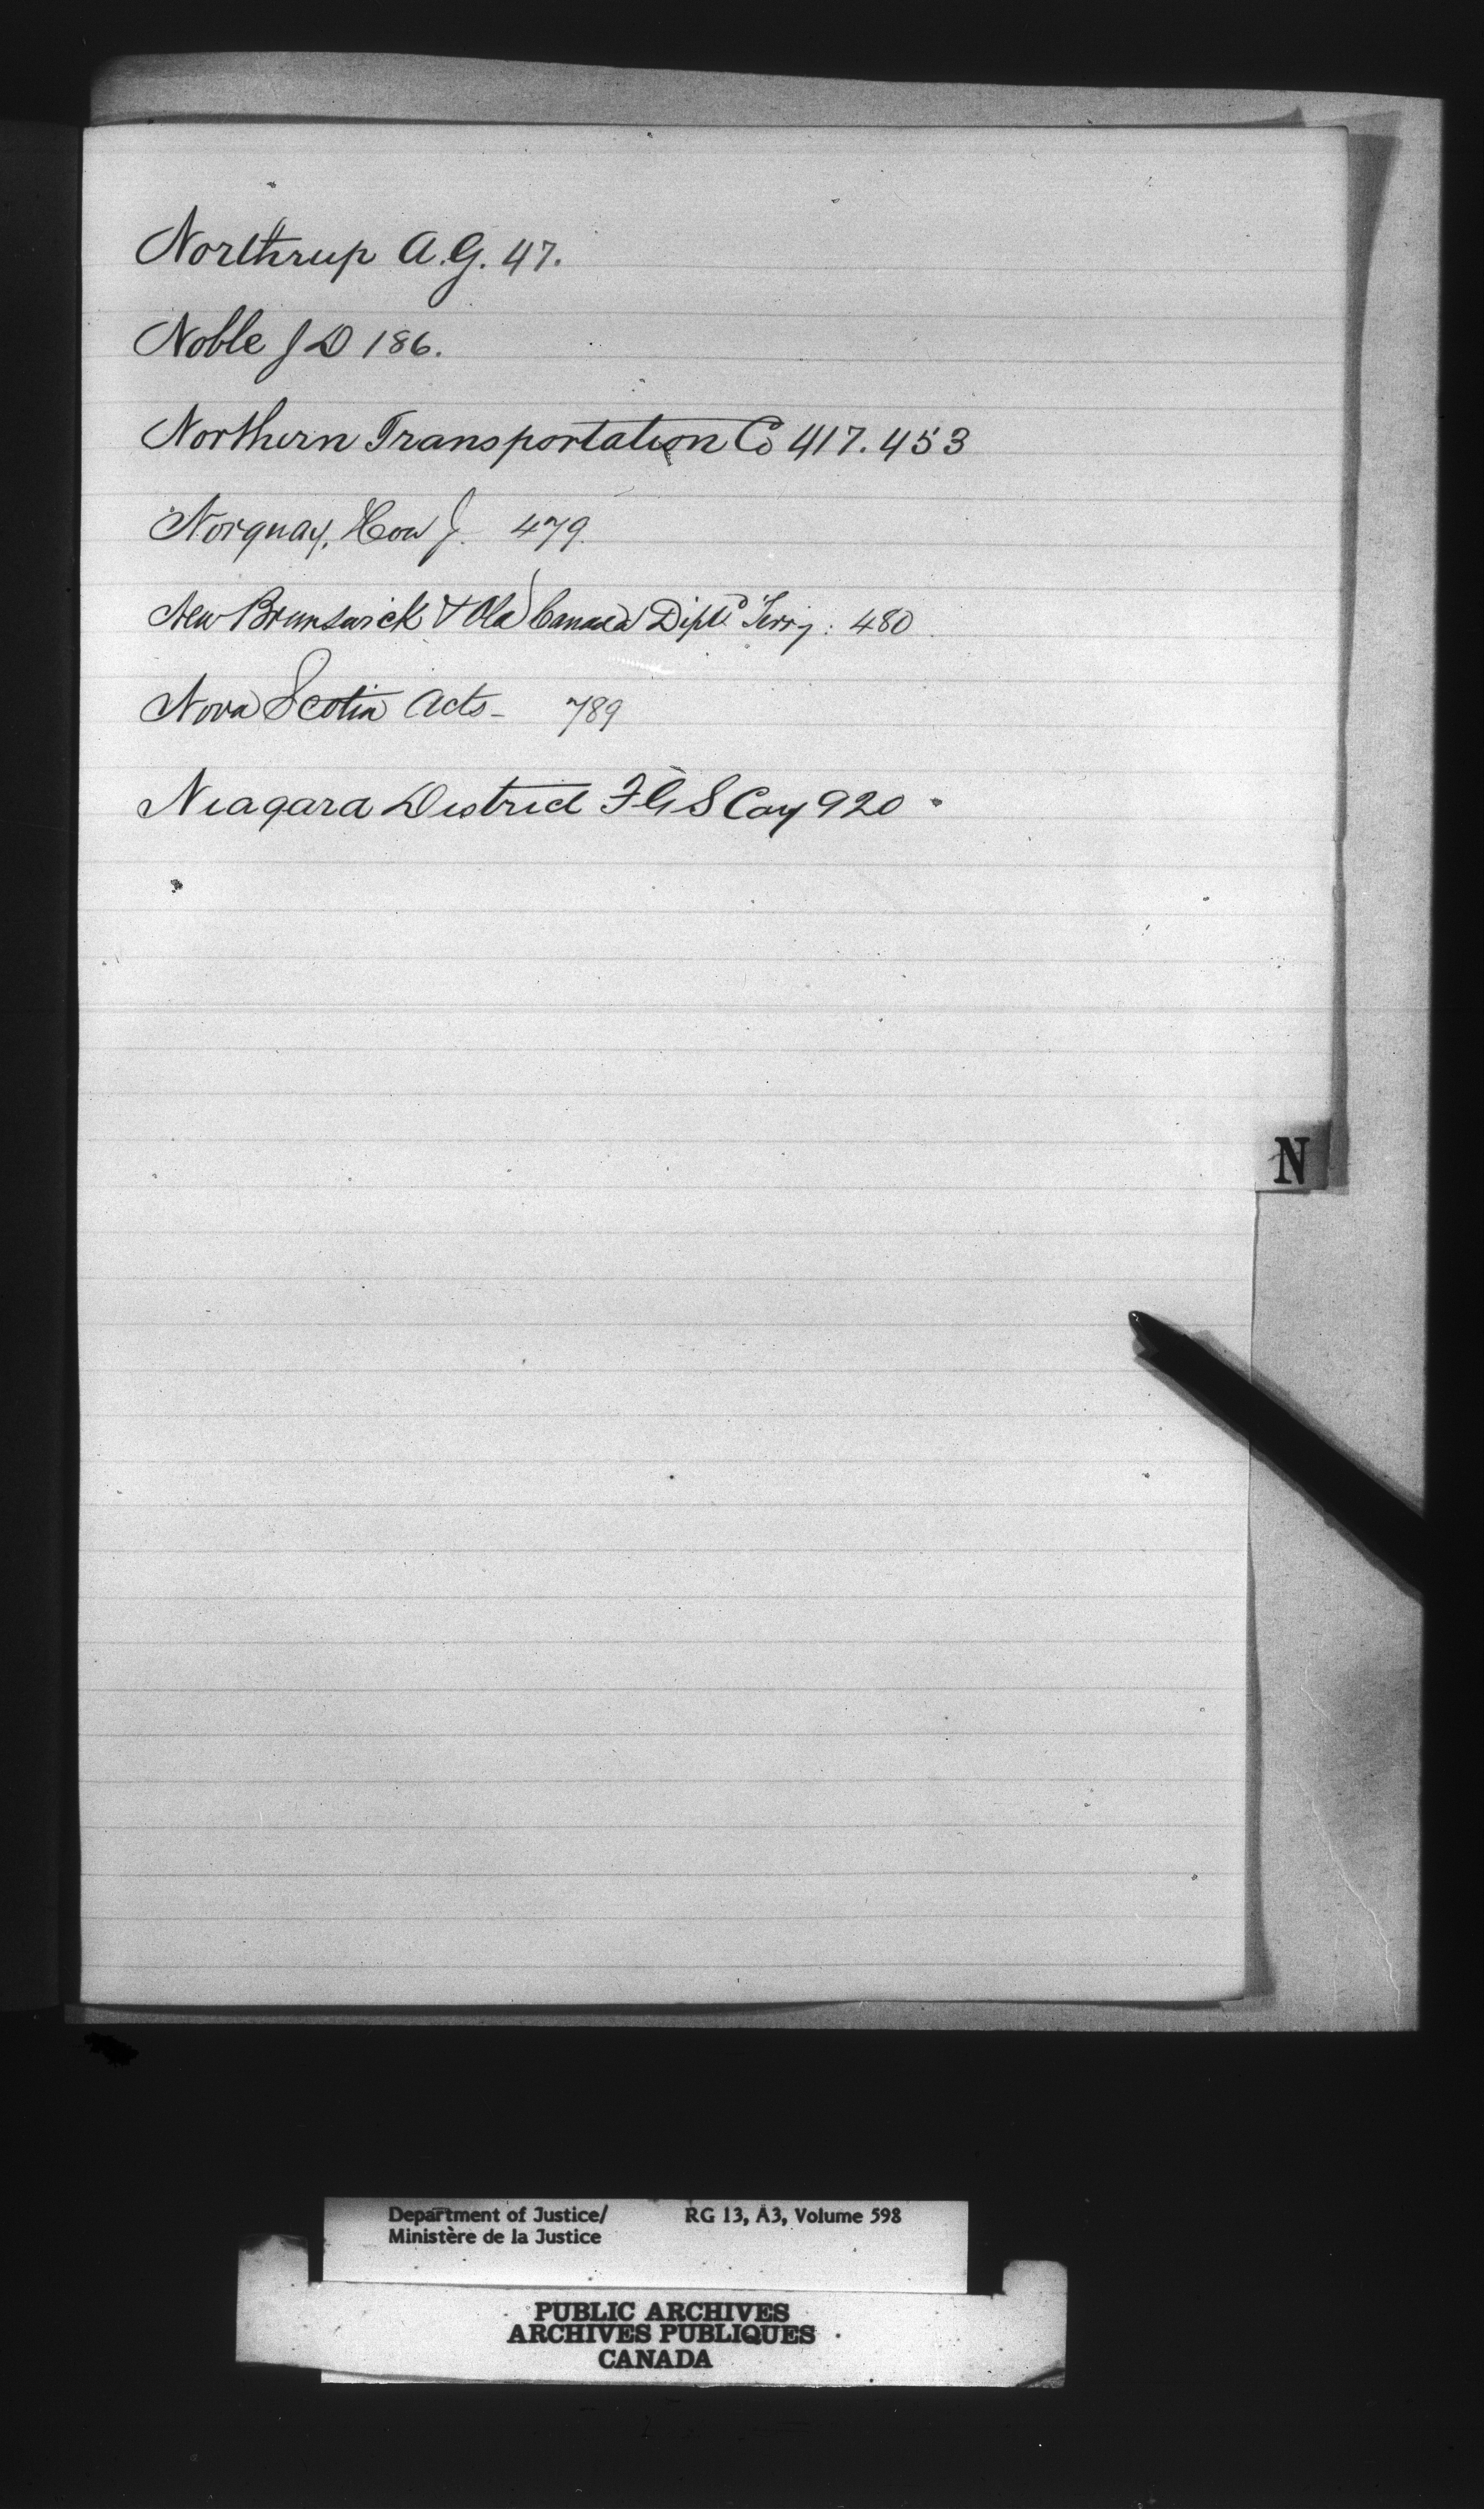 Northrup A.G. 47.
Noble J D 186.
Northern Transportation Co 417. 453
Norquay, Hon J. 479.
New Brunswick & Old Canada Disptd Terry: 480
Nova Scotia Acts - 789
Niagara District F G S Coy 920.
N
Department of Justice/ RG 13, A3, Volume 598
Ministère de la Justice
PUBLIC ARCHIVES
ARCHIVES PUBLIQUES
CANADA